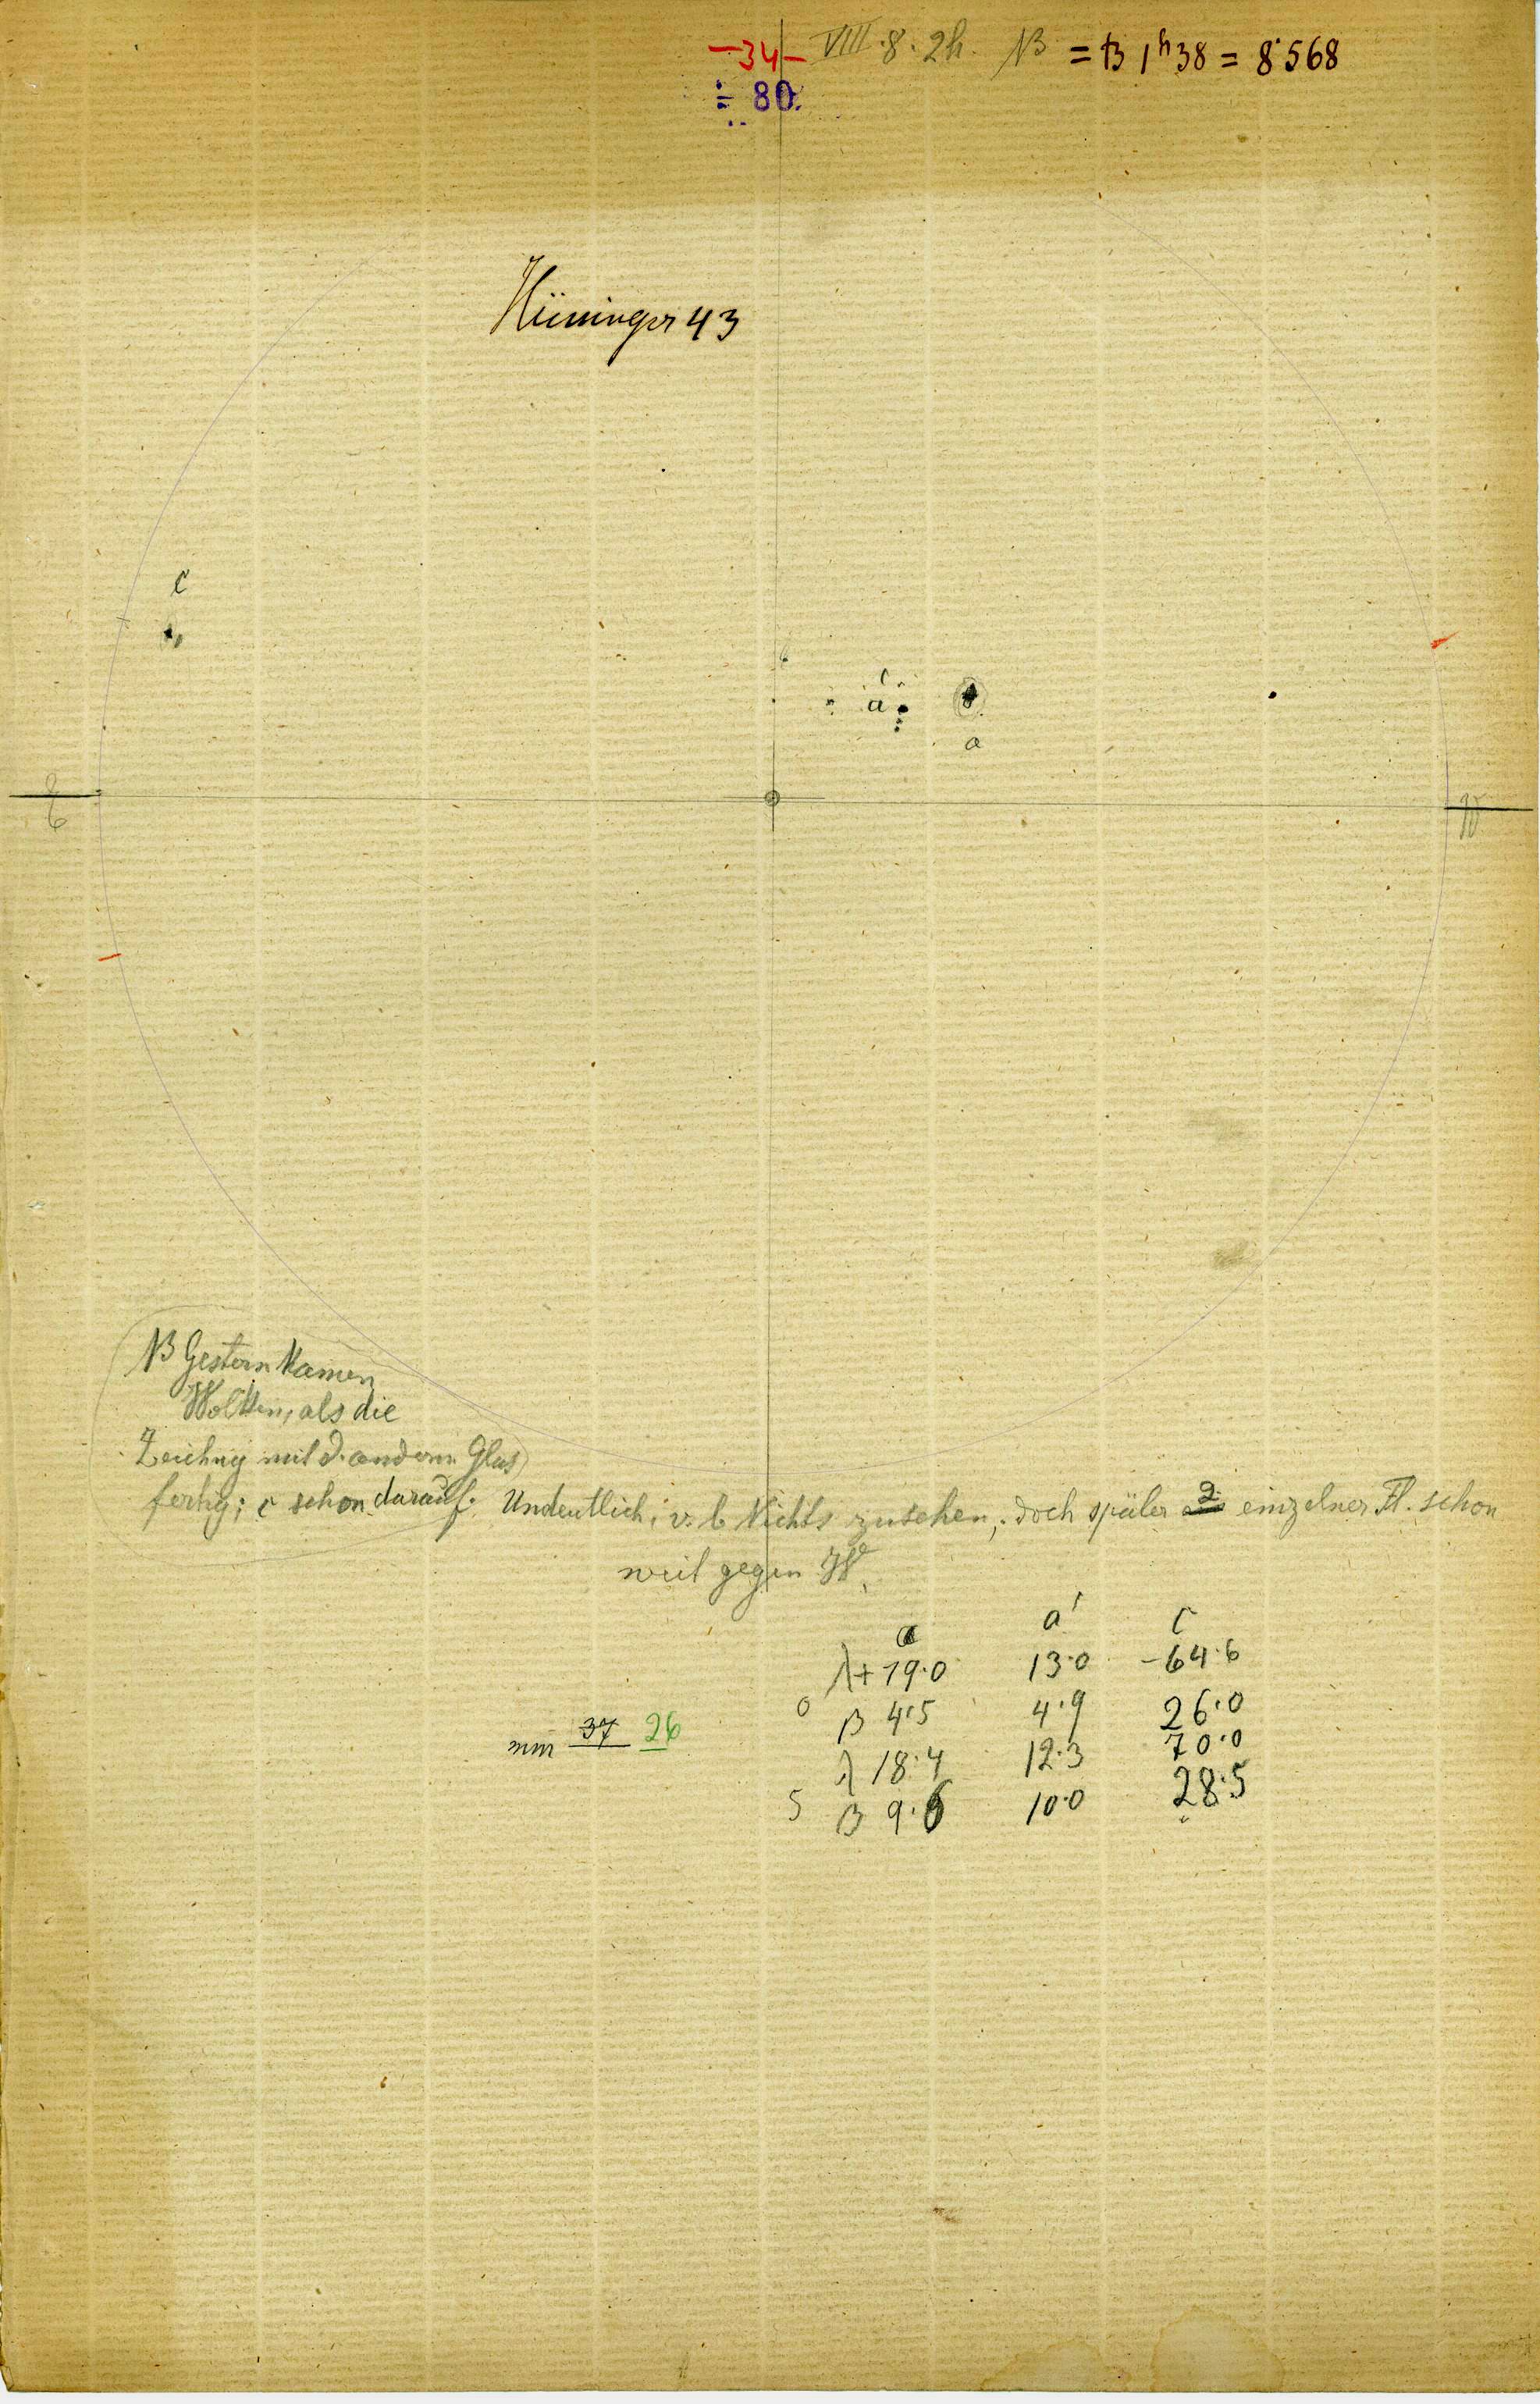 -34- VIII 8. 2h. NB = B 1ʰ38 = 8·568
÷ 80.
Hüninger 43
c
a'
a
E
W
NB Gestern kamen
Wolken, als die
Zeichng mit d. andern Glas
fertig; c schon darauf. Undeutlich; v. b Nichts zu sehen; doch später 2 einzelner Fl. schon
weit gegen W.
a a' c
λ + 19·0 13·0 -64·6
0 β 4·5 4·9 26·0
mm 37 26
λ 18·4 12·3 70·0
5 β 9·6 10·0 28·5